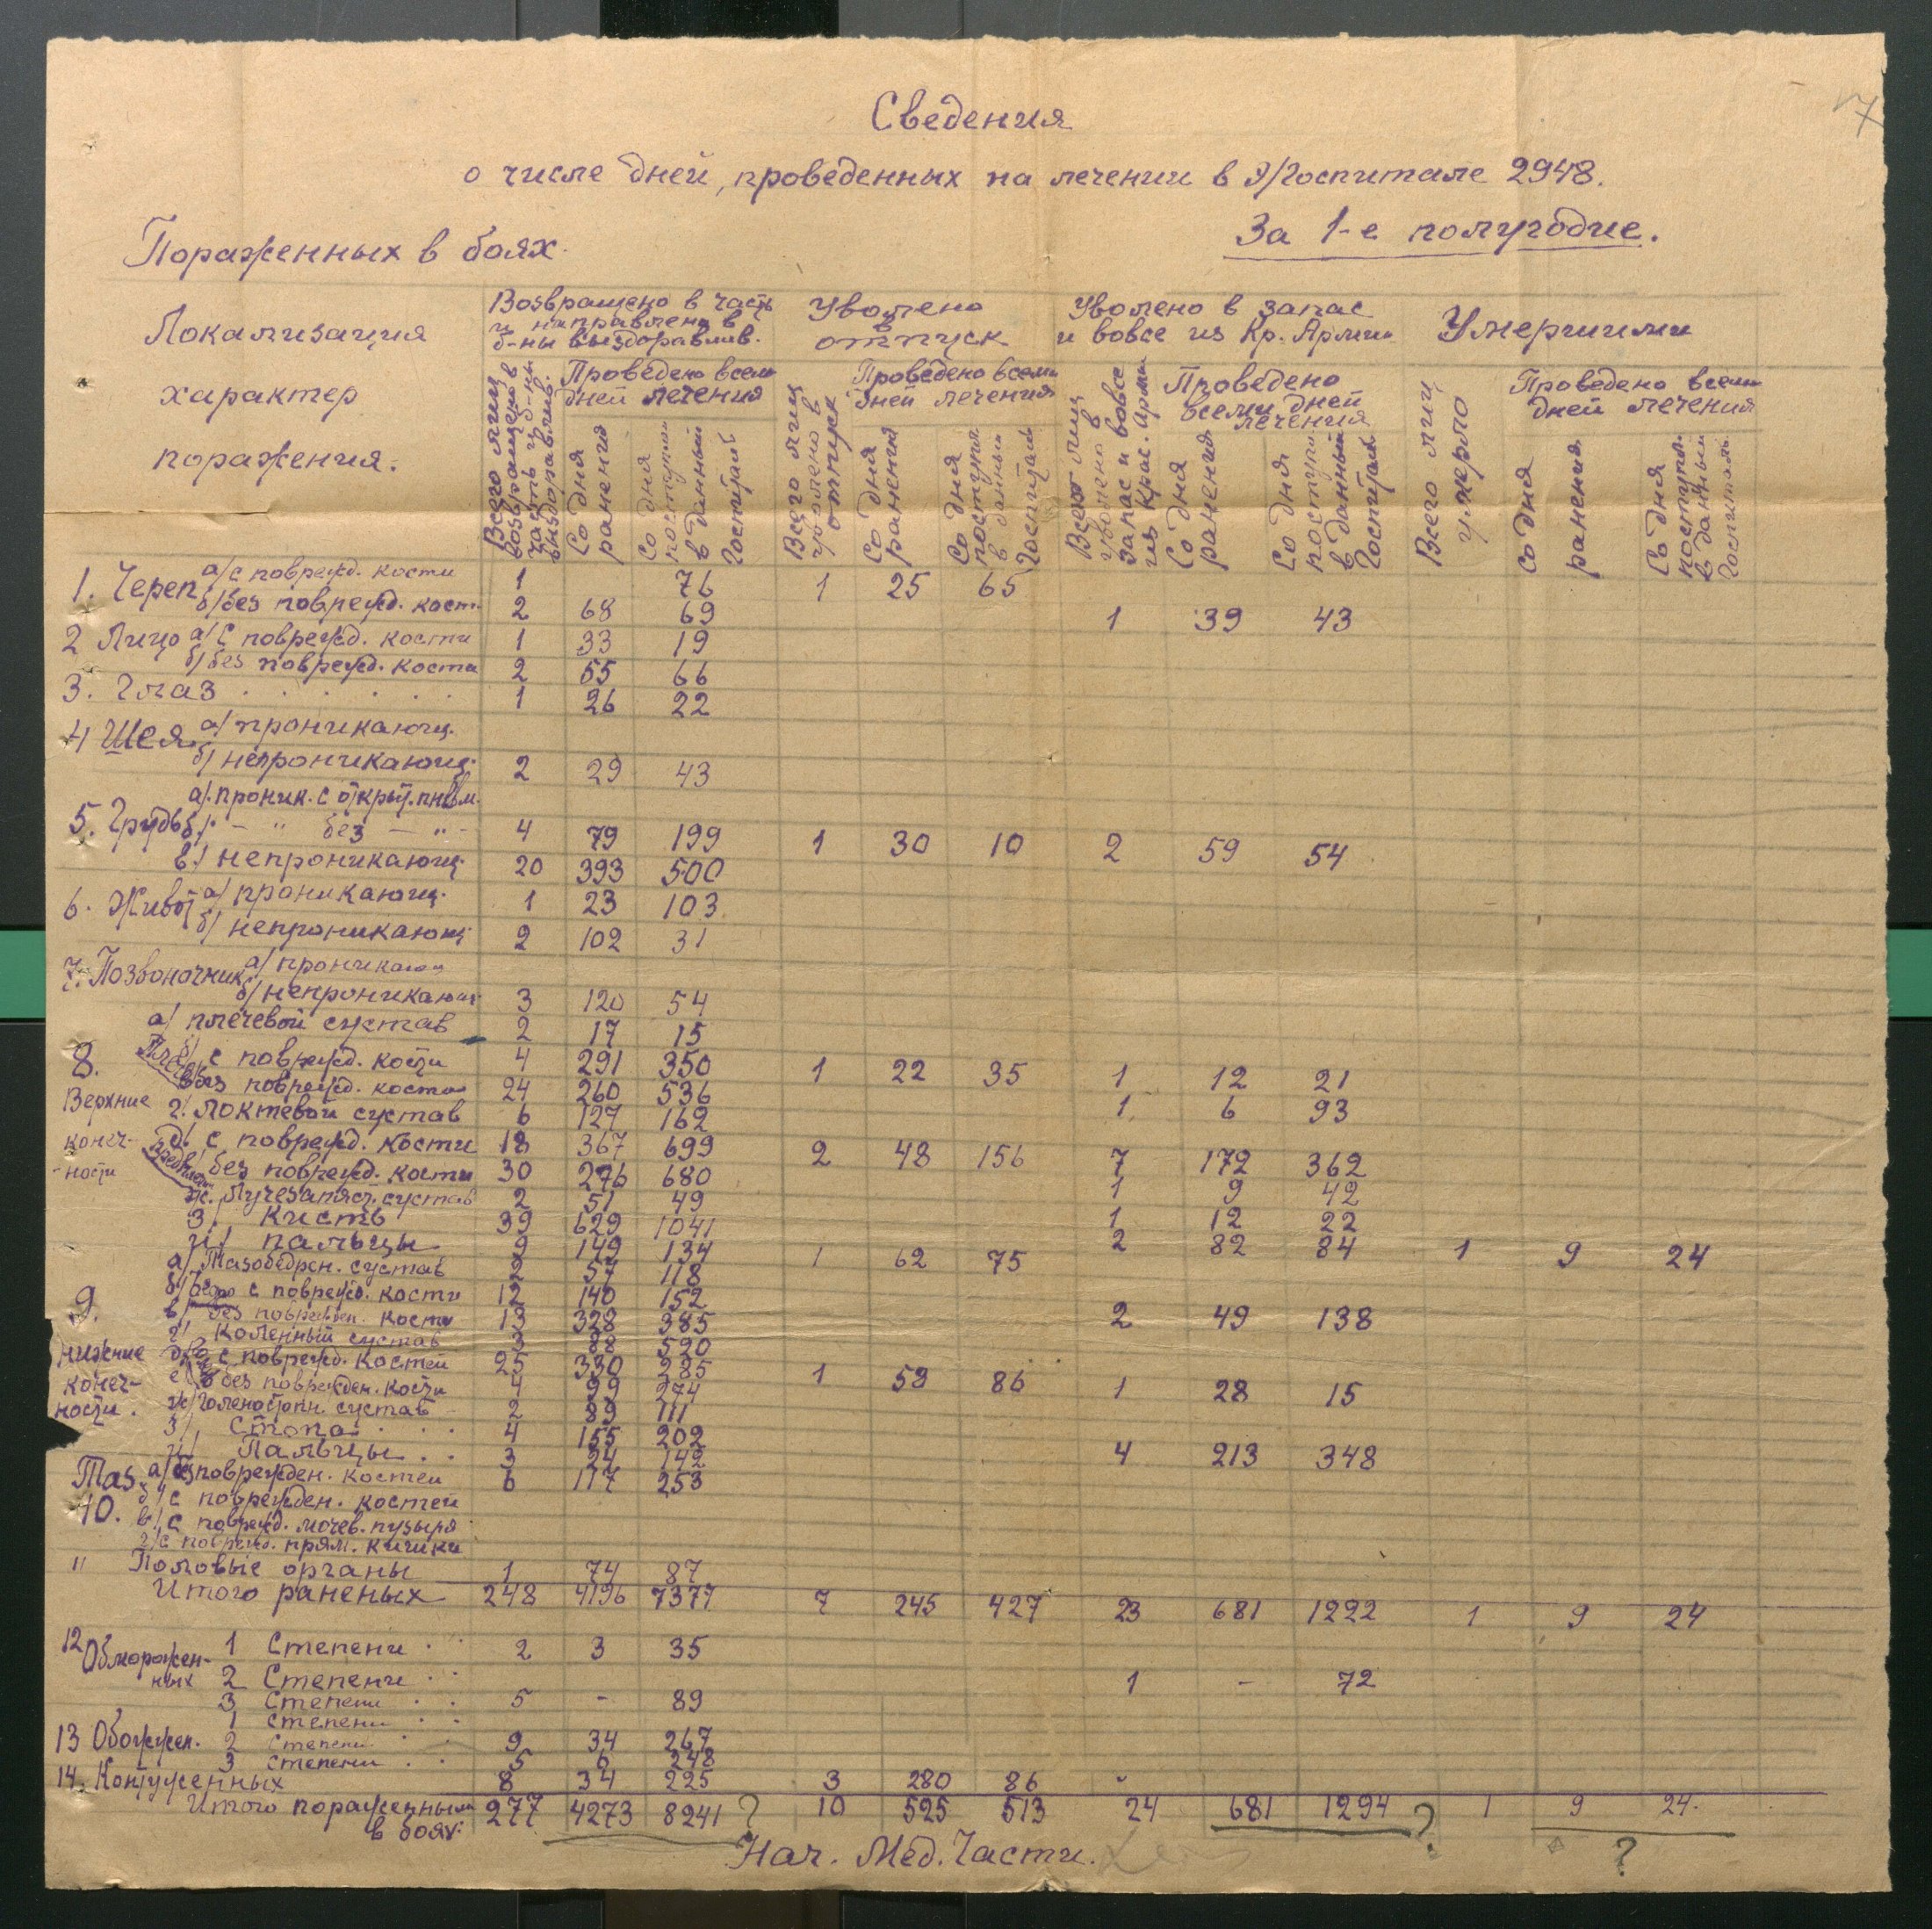 17
Сведения
о числе дней, проведенных на лечении в Э/Госпитале 2948.
За 1-е полугодие.
Пораженных в боях.
Локализация характер поражения.
Возвращено в часть и направлено в б-ны выздоравлив.
Уволено в отпуск
Уволено в запас и вовсе из Кр. Армии
Умершими
Всего лиц возвращено в часть и в б-ны выздоравлив.
Проведено всеми дней лечения
Со дня ранения
Со дня поступл. в данный госпиталь
Всего лиц уволено в отпуск
Проведено всеми дней лечения
Со дня ранения
Со дня поступл. в данный госпиталь
Всего лиц уволено в запас и вовсе из Крас. Армии
Проведено всеми дней лечения
Со дня ранения
Со дня поступл. в данный госпиталь
Всего лиц умерло
Проведено всеми дней лечения
Со дня ранения
Со дня поступл. в данный госпиталь
1. Череп а/ с поврежд. кости 1 76 1 25 65
б/ без поврежд. кост. 2 68 69 1 39 43
2 Лицо а/ С поврежд. кости 1 33 19
б/ без поврежд. кости 2 55 66
3. Глаз . . . . . . 1 26 22
4 Шея а/ проникающ.
б/ непроникающ. 2 29 43
а/. проник. с открыт. пневм.
5. Грудь б/. — " без — " - 4 79 199 1 30 10 2 59 54
в/ непроникающ. 20 393 500
6. Живот а/ проникающ. 1 23 103
б/ непроникающ 2 102 31
7. Позвоночник а/ проникающ
б/ непроникающ. 3 120 54
а/ плечевой сустав 2 17 15
8. Плечо б/ с поврежд. кости 4 291 350 1 22 35 1 12 21
в/ без поврежд. кости 24 260 536
Верхние г/. локтевой сустав 6 127 162 1 6 93
конеч- д/ с поврежд. кости 18 367 699 2 48 156 7 172 362
-ности Предплеч. без поврежд. кости 30 276 680
ж. Лучезапяст. сустав 2 51 49 1 9 42
з. Кисть 39 629 1041 1 12 22
и/ пальцы 9 149 134 1 62 75 2 82 84 1 9 24
а/ Тазобедрен. сустав 2 57 118
б/ бедро с поврежд. кости 12 140 152
9. в/ без поврежден. кости 13 328 385 2 49 138
г/ Коленный сустав 3 88 520
нижние д/ с поврежд. костей 25 330 285 1 58 86
конеч- е/ без поврежден. кости 4 99 274 1 28 15
ности. ж/ Голеностопн. сустав 2 89 111
з/ Стопа . . . 4 155 202
и/ Пальцы . . 3 24 142 4 213 348
Таз а/ без поврежден. костей 6 117 253
10. б/ с поврежден. костей
в/ с поврежд. мочев. пузыря
г/ с поврежд. прям. кишки
11 Половые органы 1 74 87
Итого раненых 248 4196 7377 7 245 427 23 681 1222 1 9 24
12 Обморожен- 1 Степени . . 2 3 35
ных 2 Степени . . 1 - 72
3 Степени . . 5 - 89
1 степени . .
13 Обожжен. 2 степени . . 9 34 267
3 степени . . 5 6 248
14. Контуженных 8 34 225 3 280 86
Итого пораженных в боях: 277 4273 8241 ? 10 525 513 24 681 1294 ? 1 9 24.
?
Нач. Мед. Части.